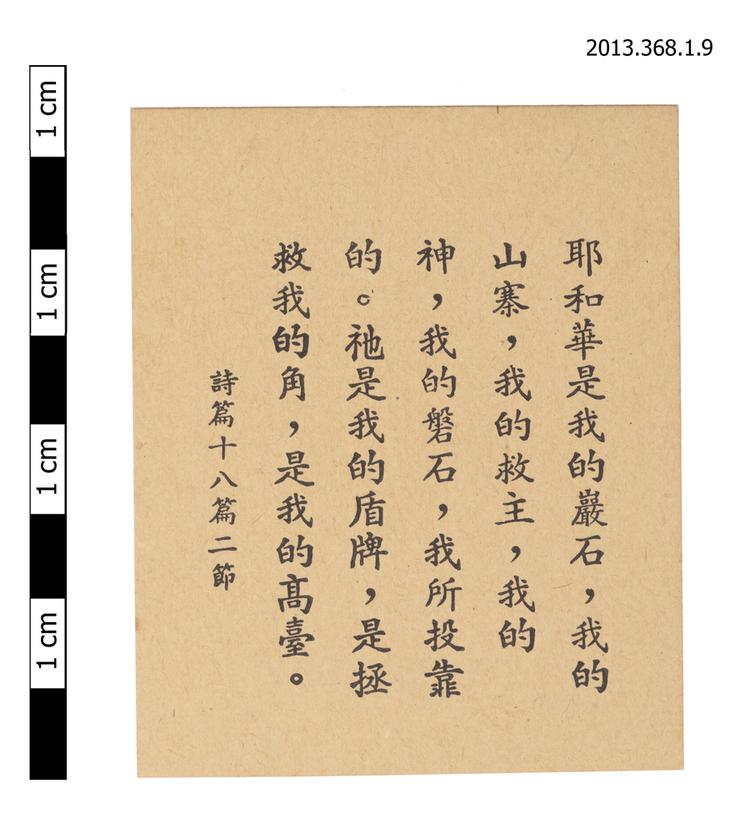 2013.368.1.9
1 cm
1 cm
1 cm
1 cm
耶和華是我的巖石，我的
山寨，我的救主，我的
神，我的磐石，我所投靠
的。祂是我的盾牌，是拯
救我的角，是我的高臺。
詩篇十八篇二節